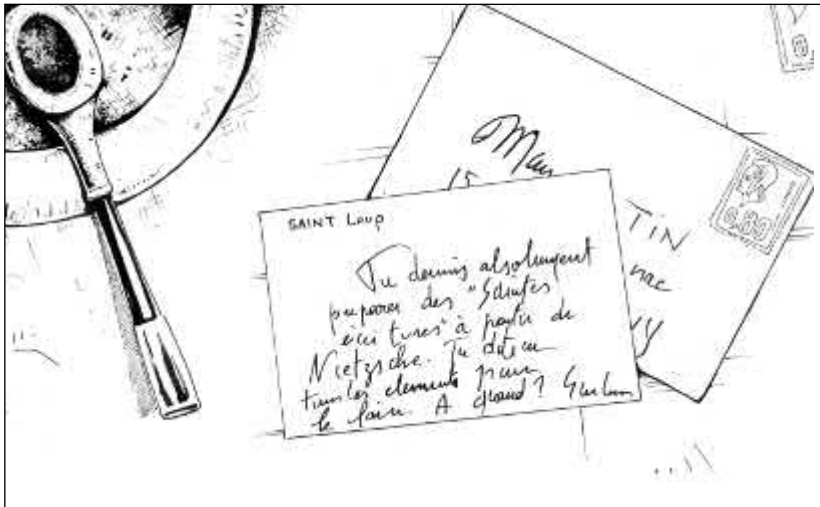 0.80
TIN
15
SAINT Loup
Tu devrais absolument
préparer des "Saintes
écritures" à partir de
Nietzsche. Tu détiens
tous les elements pour
le faire. A quand ?